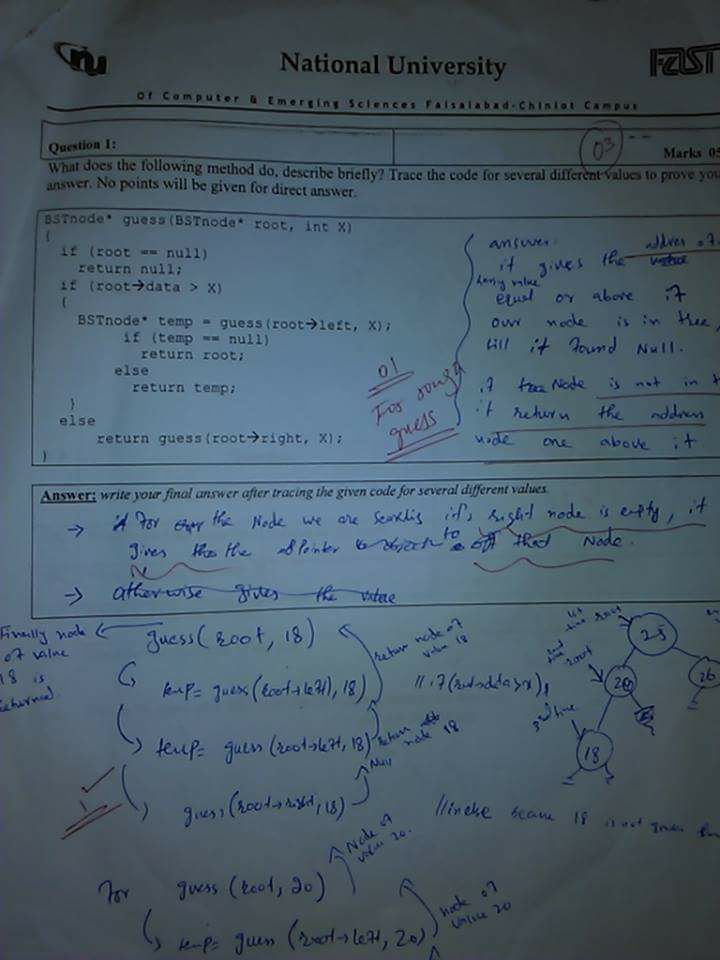 nu
National University
FAST
Of Computer & Emerging Sciences Faisalabad-Chiniot Campus
Question 1:
03
Marks 05
What does the following method do, describe briefly? Trace the code for several different values to prove you
answer. No points will be given for direct answer.
BSTnode* guess(BSTnode* root, int X)
{
if (root == null)
return null;
if (root→data > X)
{
BSTnode* temp = guess(root→left, X);
if (temp == null)
return root;
else
return temp;
}
else
return guess(root→right, X);
}
answer:
it gives the addres of
having value
equal or above if
our node is in tree,
till it found Null.
if Node is not in t
it return the address
node one above it
01
For rough
guess
Answer: write your final answer after tracing the given code for several different values.
→ For the Node we are searching it's right node is empty, it
gives the Pointer to that Node.
→ otherwise gives the value
Finally node
of value
18 is
returned.
guess(root, 18)
return node of
value 18
temp = guess(root→left, 18)
// if (root→data > x)
temp = guess(root→left, 18)
return
node 18
Null
1
guess(root→right, 18)
// in else 18 is not greater
1st
time root
25
2nd
time root
20
26
3rd time
18
For guess(root, 20)
Node of
value 20.
temp = guess(root→left, 20)
node of
value 20